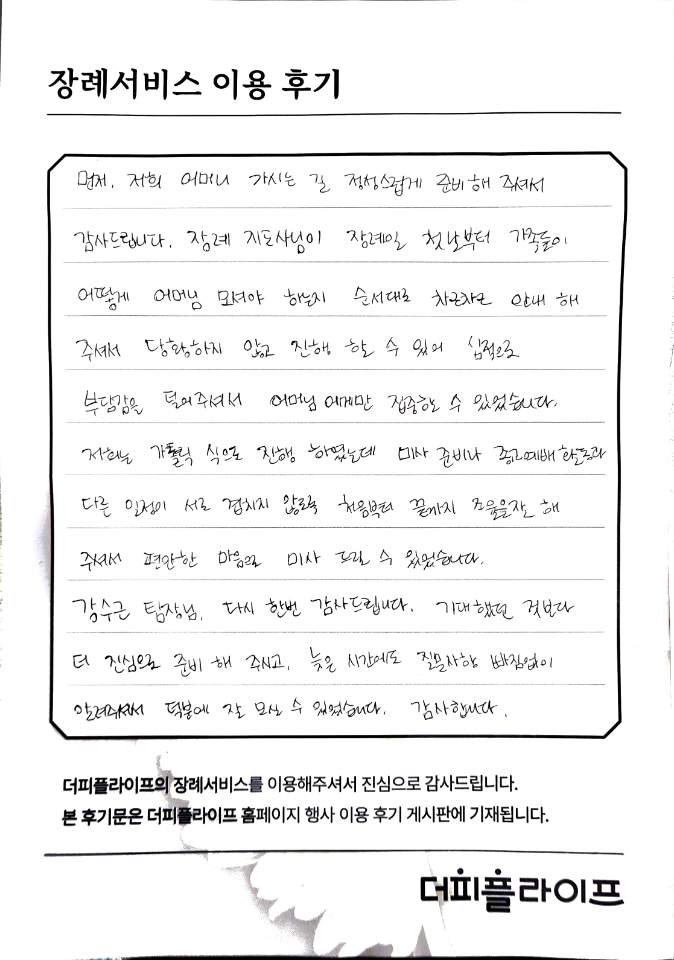 장례서비스 이용 후기
먼저, 저희 어머니 가시는 길 정성스럽게 준비해 주셔서
감사드립니다. 장례 지도사님이 장례일 첫날부터 가족들이
어떻게 어머님 모셔야 하는지 순서대로 차근차근 안내 해
주셔서 당황하지 않고 진행 할 수 있어 심적으로
부담감을 덜어주셔서 어머님에게만 집중할 수 있었습니다.
저희는 가톨릭 식으로 진행 하였는데 미사 준비나 종교예배 활동과
다른 일정이 서로 겹치지 않도록 처음부터 끝까지 조율을 해
주셔서 편안한 마음으로 미사 드릴 수 있었습니다.
강수근 팀장님, 다시 한번 감사드립니다. 기대했던 것보다
더 진심으로 준비 해 주시고, 늦은 시간에도 질문사항 빠짐없이
알려주셔서 덕분에 잘 모실 수 있었습니다. 감사합니다.
더피플라이프의 장례서비스를 이용해주셔서 진심으로 감사드립니다.
본 후기문은 더피플라이프 홈페이지 행사 이용 후기 게시판에 기재됩니다.
더피플라이프